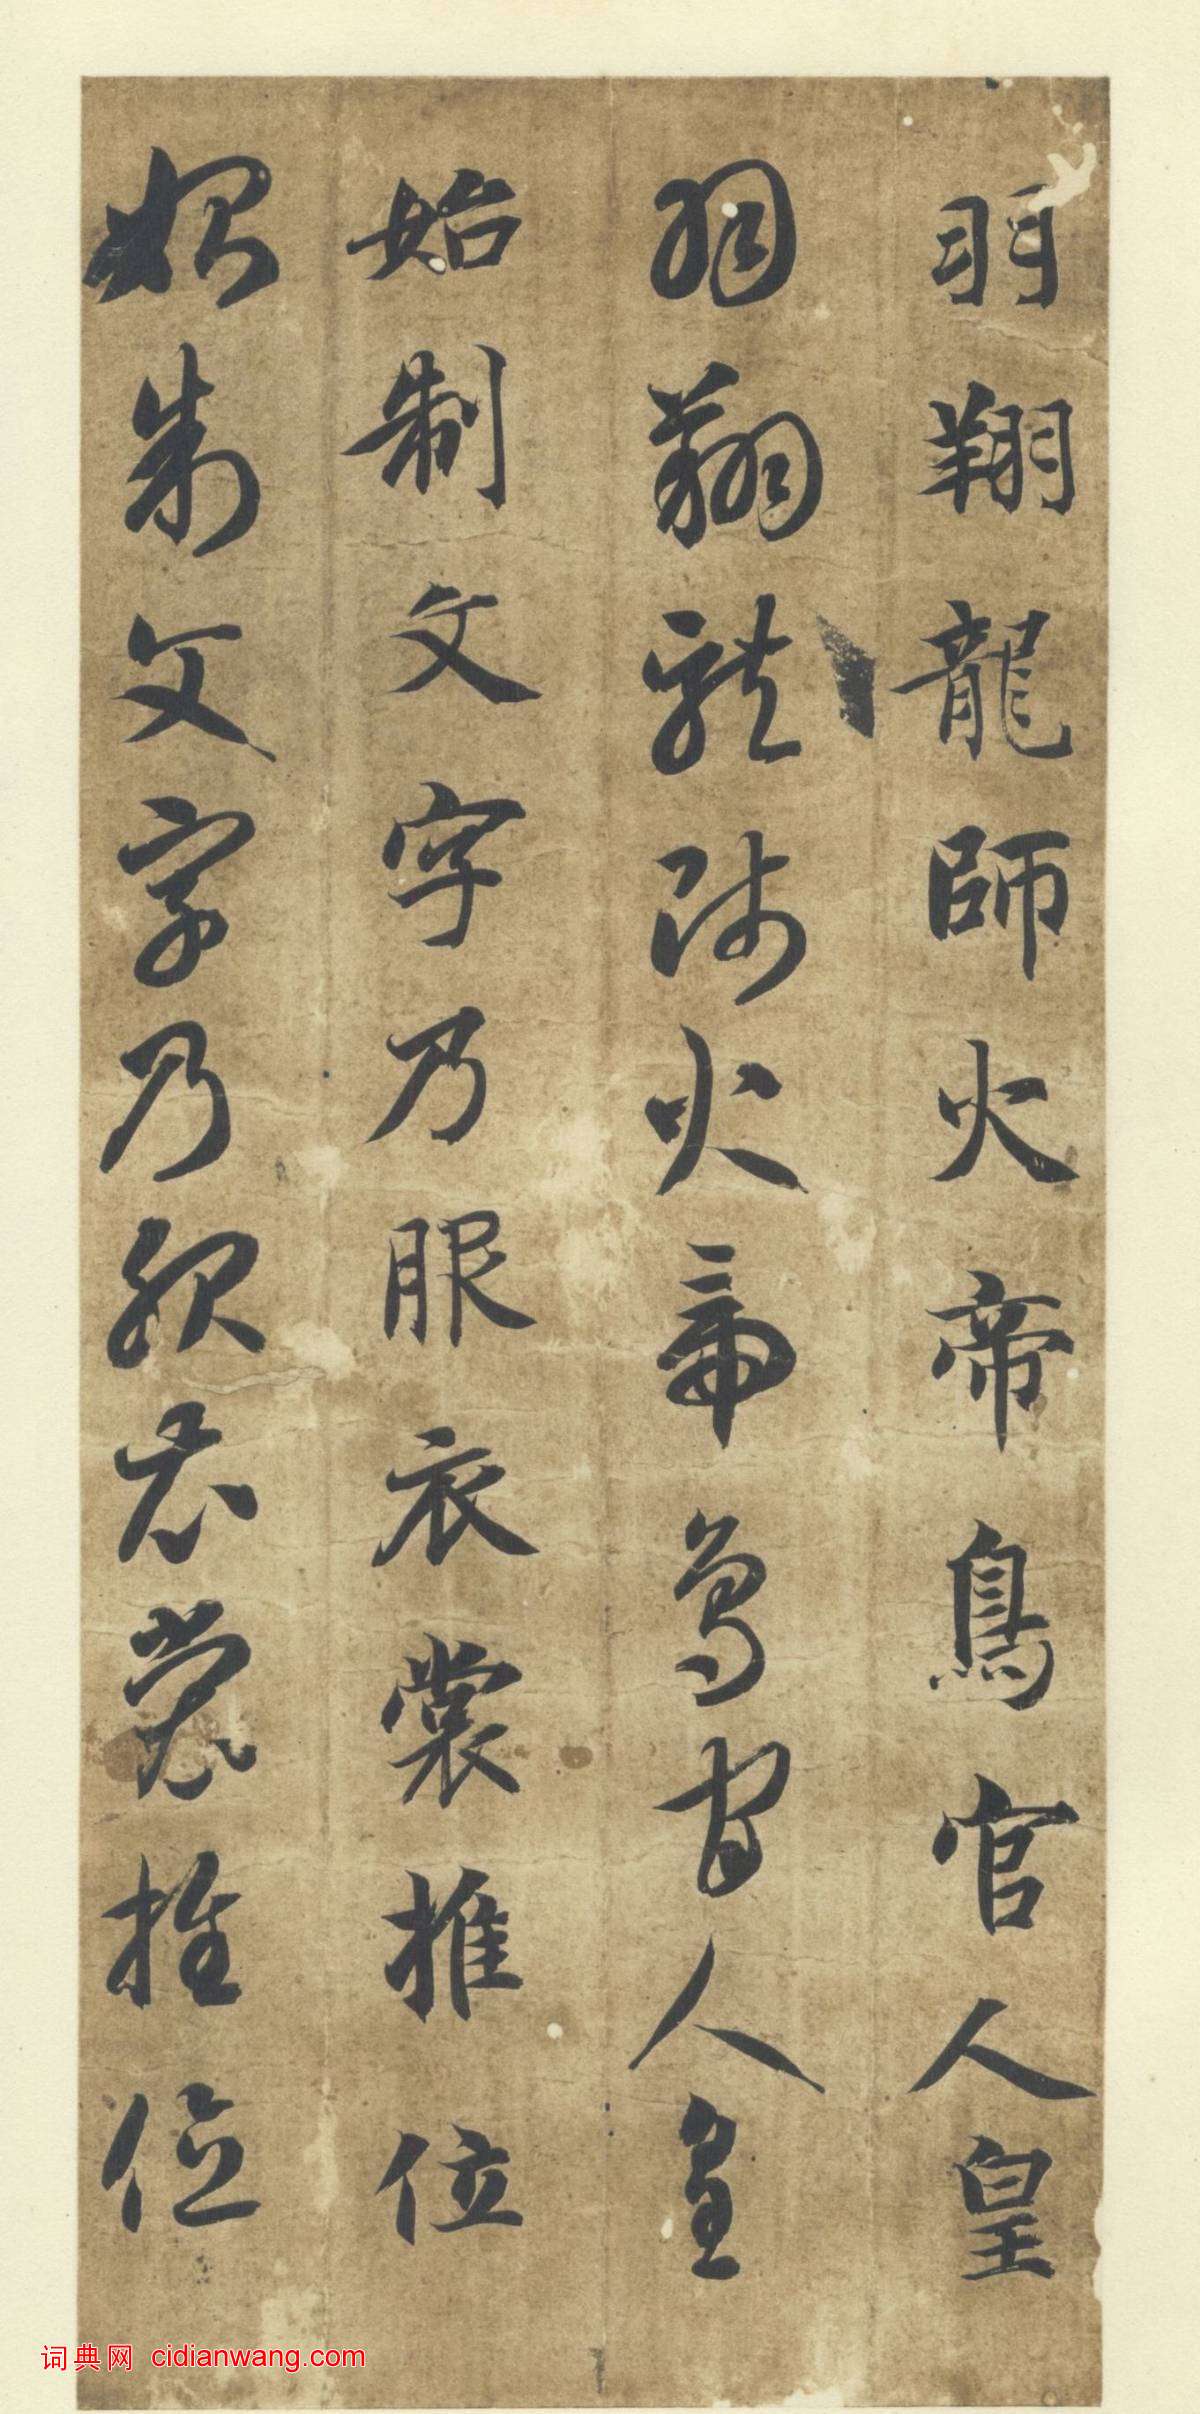 羽翔龍師火帝鳥官人皇
羽翔龍師火帝鳥官人皇
始制文字乃服衣裳推位
始制文字乃服衣裳推位
词典网 cidianwang.com